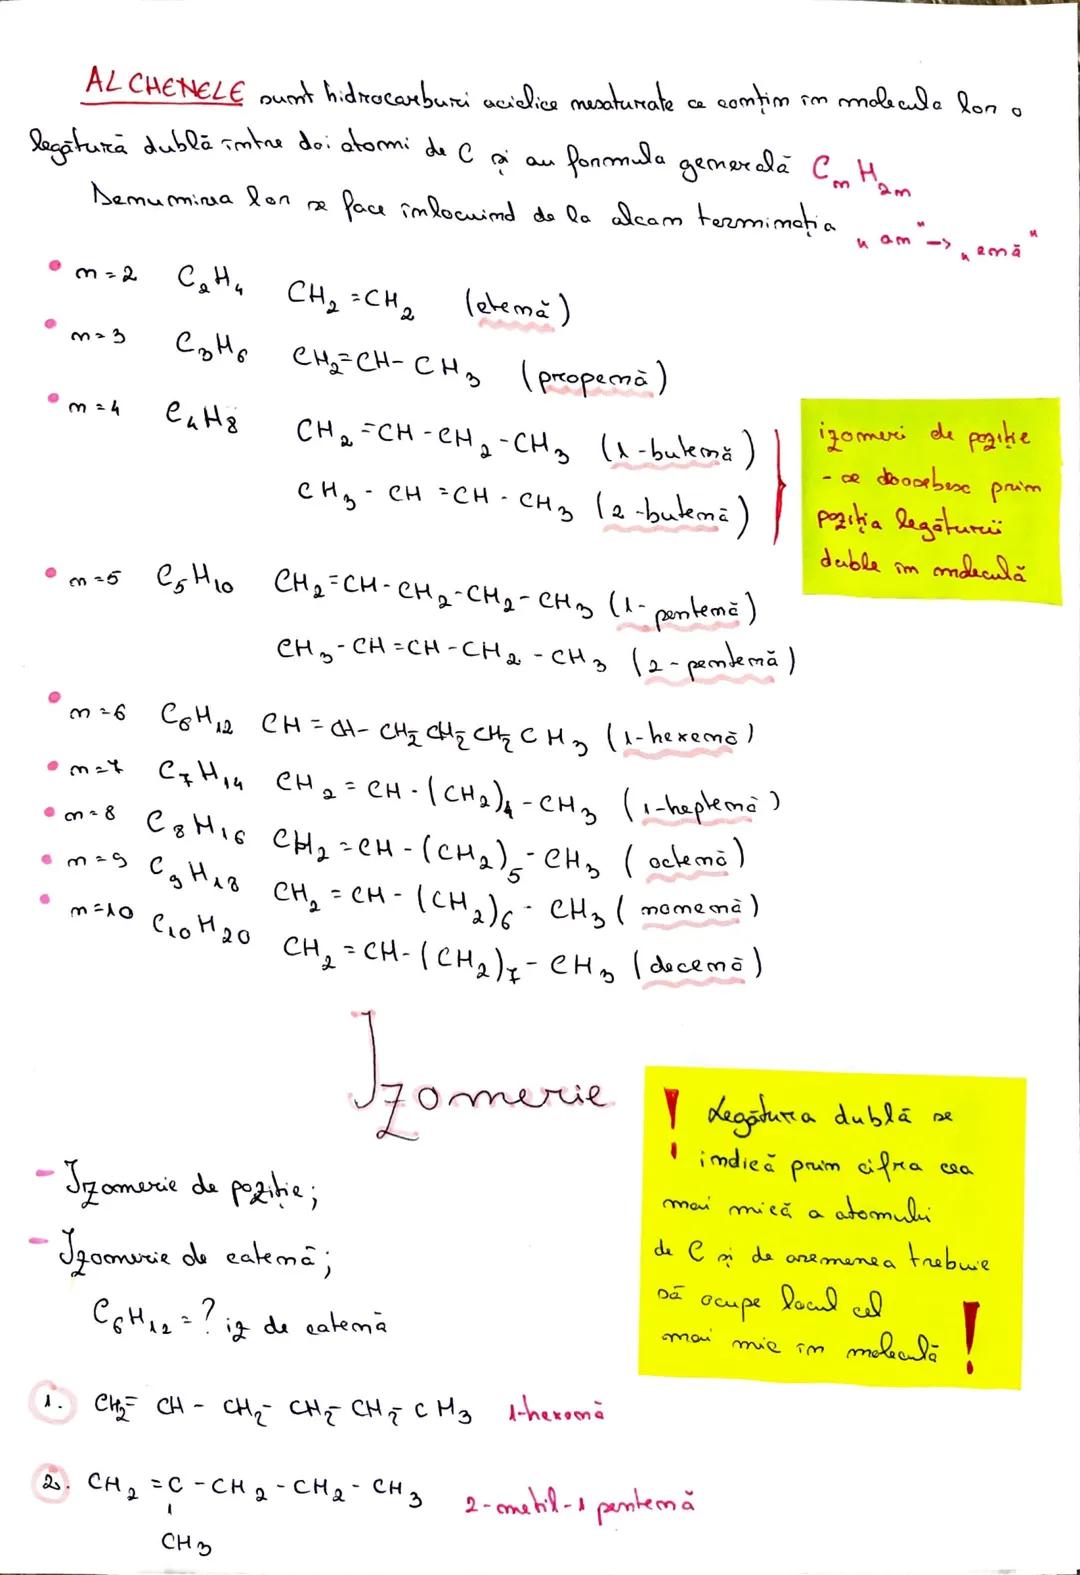 ALCHENELE sunt hidrocarburi aciclice nesaturate ce conțin în molecula lor o
legătură dublă între doi atomi de C și au formula generală CₙH₂ₙ
Denumirea lor se face înlocuind de la alcan terminația „an" -> „enă"
• n=2 C₂H₄ CH₂=CH₂ (etenă)
• n=3 C₃H₆ CH₂=CH-CH₃ (propenă)
• n=4 C₄H₈ CH₂=CH-CH₂-CH₃ (1-butenă)
CH₃-CH=CH-CH₃ (2-butenă)
izomeri de poziție
- se doosebesc prin
poziția legăturii
duble în moleculă
• n=5 C₅H₁₀ CH₂=CH-CH₂-CH₂-CH₃ (1-pentenă)
CH₃-CH=CH-CH₂-CH₃ (2-pentenă)
• n=6 C₆H₁₂ CH=CH-CH₂-CH₂-CH₂ CH₃ (1-hexenă)
• n=7 C₇H₁₄ CH₂=CH-(CH₂)₄-CH₃ (1-heptenă)
• n=8 C₈H₁₆ CH₂=CH-(CH₂)₅-CH₃ (octenă)
• n=9 C₉H₁₈ CH₂=CH-(CH₂)₆-CH₃ (nonenă)
• n=10 C₁₀H₂₀ CH₂=CH-(CH₂)₇-CH₃ (decenă)
Izomerie
- Izomerie de poziție;
- Izomerie de catenă;
C₆H₁₂=? iz de catenă
! Legătura dublă se
indică prin cifra cea
mai mică a atomului
de C și de asemenea trebuie
să ocupe locul cel
mai mic în moleculă !
1. CH₂=CH-CH₂-CH₂-CH₂-CH₃ 1-hexenă
2. CH₂=C-CH₂-CH₂-CH₃ 2-metil-1 pentenă
CH₃